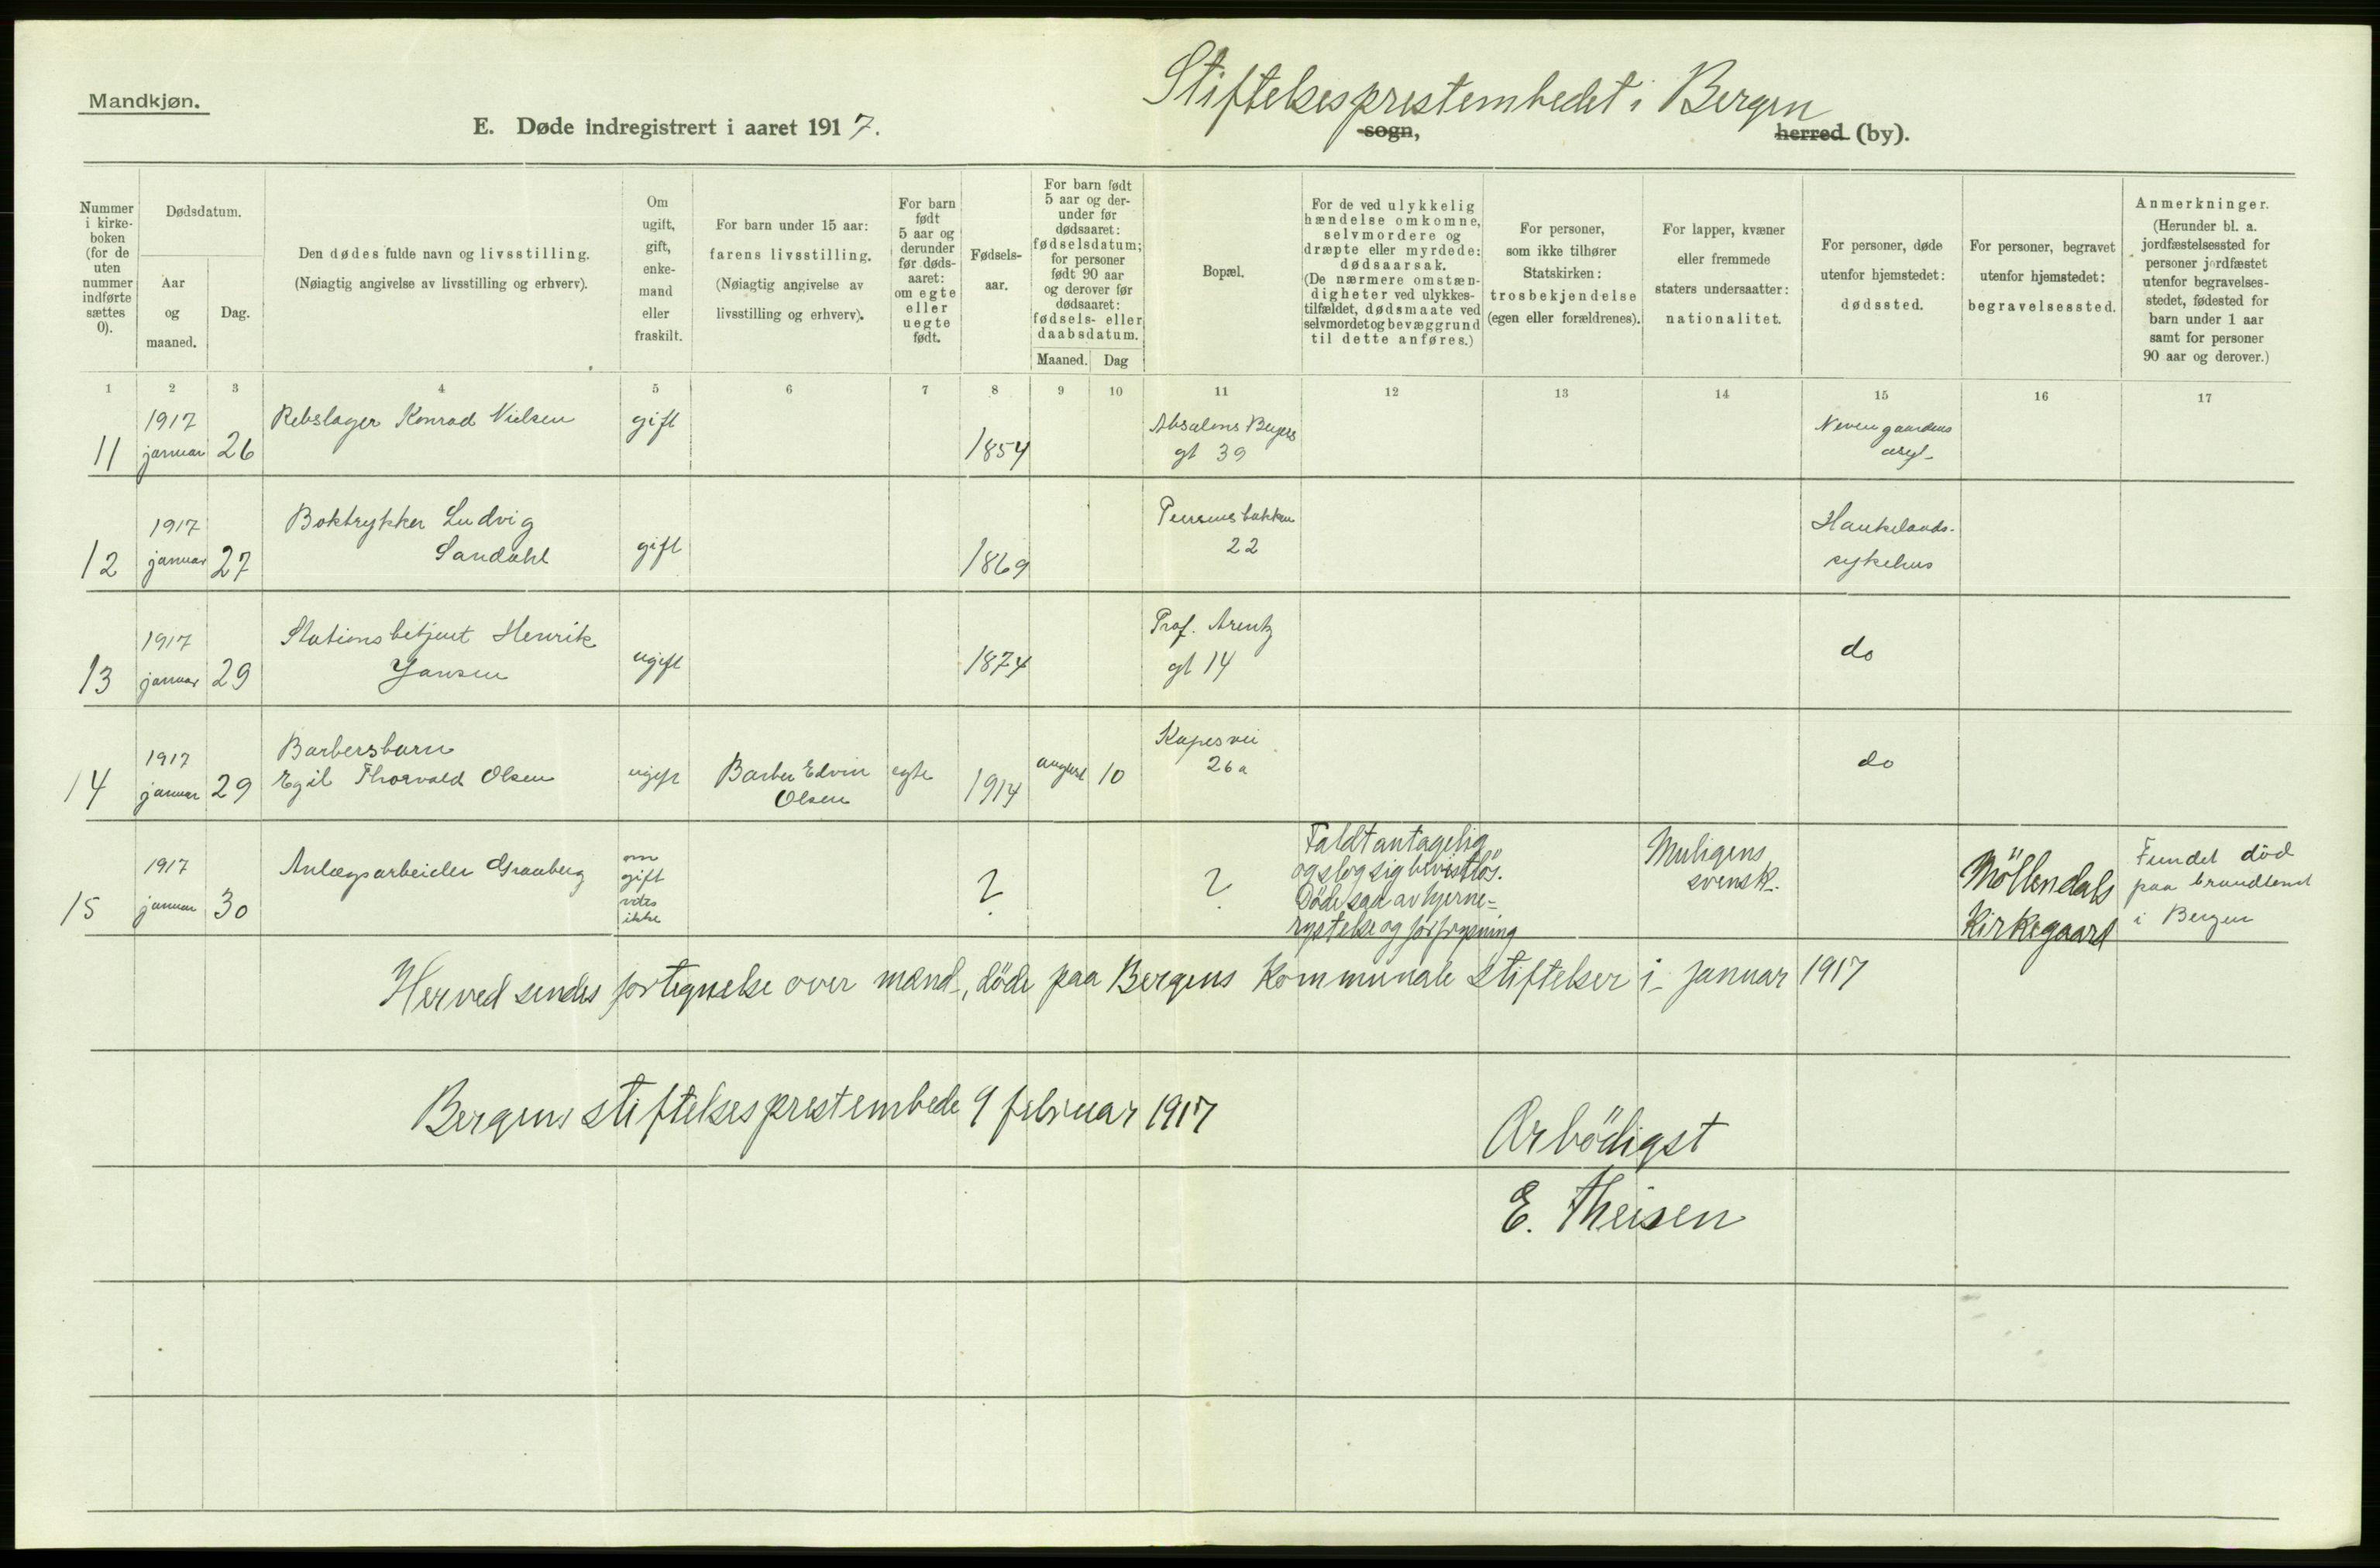 Mandkjøn.
E. Døde indregistrert i aaret 1917.
Stiftelsesprestembedet i Bergen
sogn,
herred (by).
Nummer i kirke-boken (for de uten nummer indførte sættes 0).
Dødsdatum.
Aar og maaned.
Dag.
Den dødes fulde navn og livsstilling.
(Nøiagtig angivelse av livsstilling og erhverv).
Om ugift, gift, enke-mand eller fraskilt.
For barn under 15 aar:
farens livsstilling.
(Nøiagtig angivelse av livsstilling og erhverv).
For barn født 5 aar og derunder før døds-aaret: om egte eller uegte født.
Fødsels-aar.
For barn født 5 aar og der-under før dødsaaret: fødselsdatum; for personer født 90 aar og derover før dødsaaret: fødsels- eller daabsdatum.
Maaned. Dag
Bopæl.
For de ved ulykkelig hændelse omkomne, selvmordere og dræpte eller myrdede: dødsaarsak.
(De nærmere omstæn-digheter ved ulykkes-tilfældet, dødsmaate ved selvmordet og bevæggrund til dette anføres.)
For personer, som ikke tilhører Statskirken: trosbekjendelse (egen eller forældrenes).
For lapper, kvæner eller fremmede staters undersaatter: nationalitet.
For personer, døde utenfor hjemstedet: dødssted.
For personer, begravet utenfor hjemstedet: begravelsessted.
Anmerkninger.
(Herunder bl. a. jordfæstelsessted for personer jordfæstet utenfor begravelses-stedet, fødested for barn under 1 aar samt for personer 90 aar og derover.)
1 2 3 4 5 6 7 8 9 10 11 12 13 14 15 16 17
11 1917 januar 26 Rebslager Konrad Nielsen gift 1854 Absalons Beyers gt 39 Nevengaardens asyl-
12 1917 januar 27 Boktrykker Ludvig Sandahl gift 1869 22 Haukelands-sykehus
13 1917 januar 29 Stationsbetjent Henrik Jansen ugift 1874 Prof. Arentz gt 14 do
14 1917 januar 29 Barbersbarn Egil Thorvald Olsen ugift Barber Edvin Olsen egte 1914 august 10 26a do
15 1917 januar 30 Anlægsarbeider Graaberg om gift vites ikke ? ? Faldt antagelig og slog sig bevistlös. Döde saa av hjerne=rystelse og forfrysning Muligens svensk. Möllendals Kirkegaard Fundet död paa i Bergen
Herved sendes fortegnelse over mænd, döde paa Bergens Kommunale Stiftelser i januar 1917
Bergens stiftelsesprestembede 9 februar 1917
Arbödigst
E. Theisen